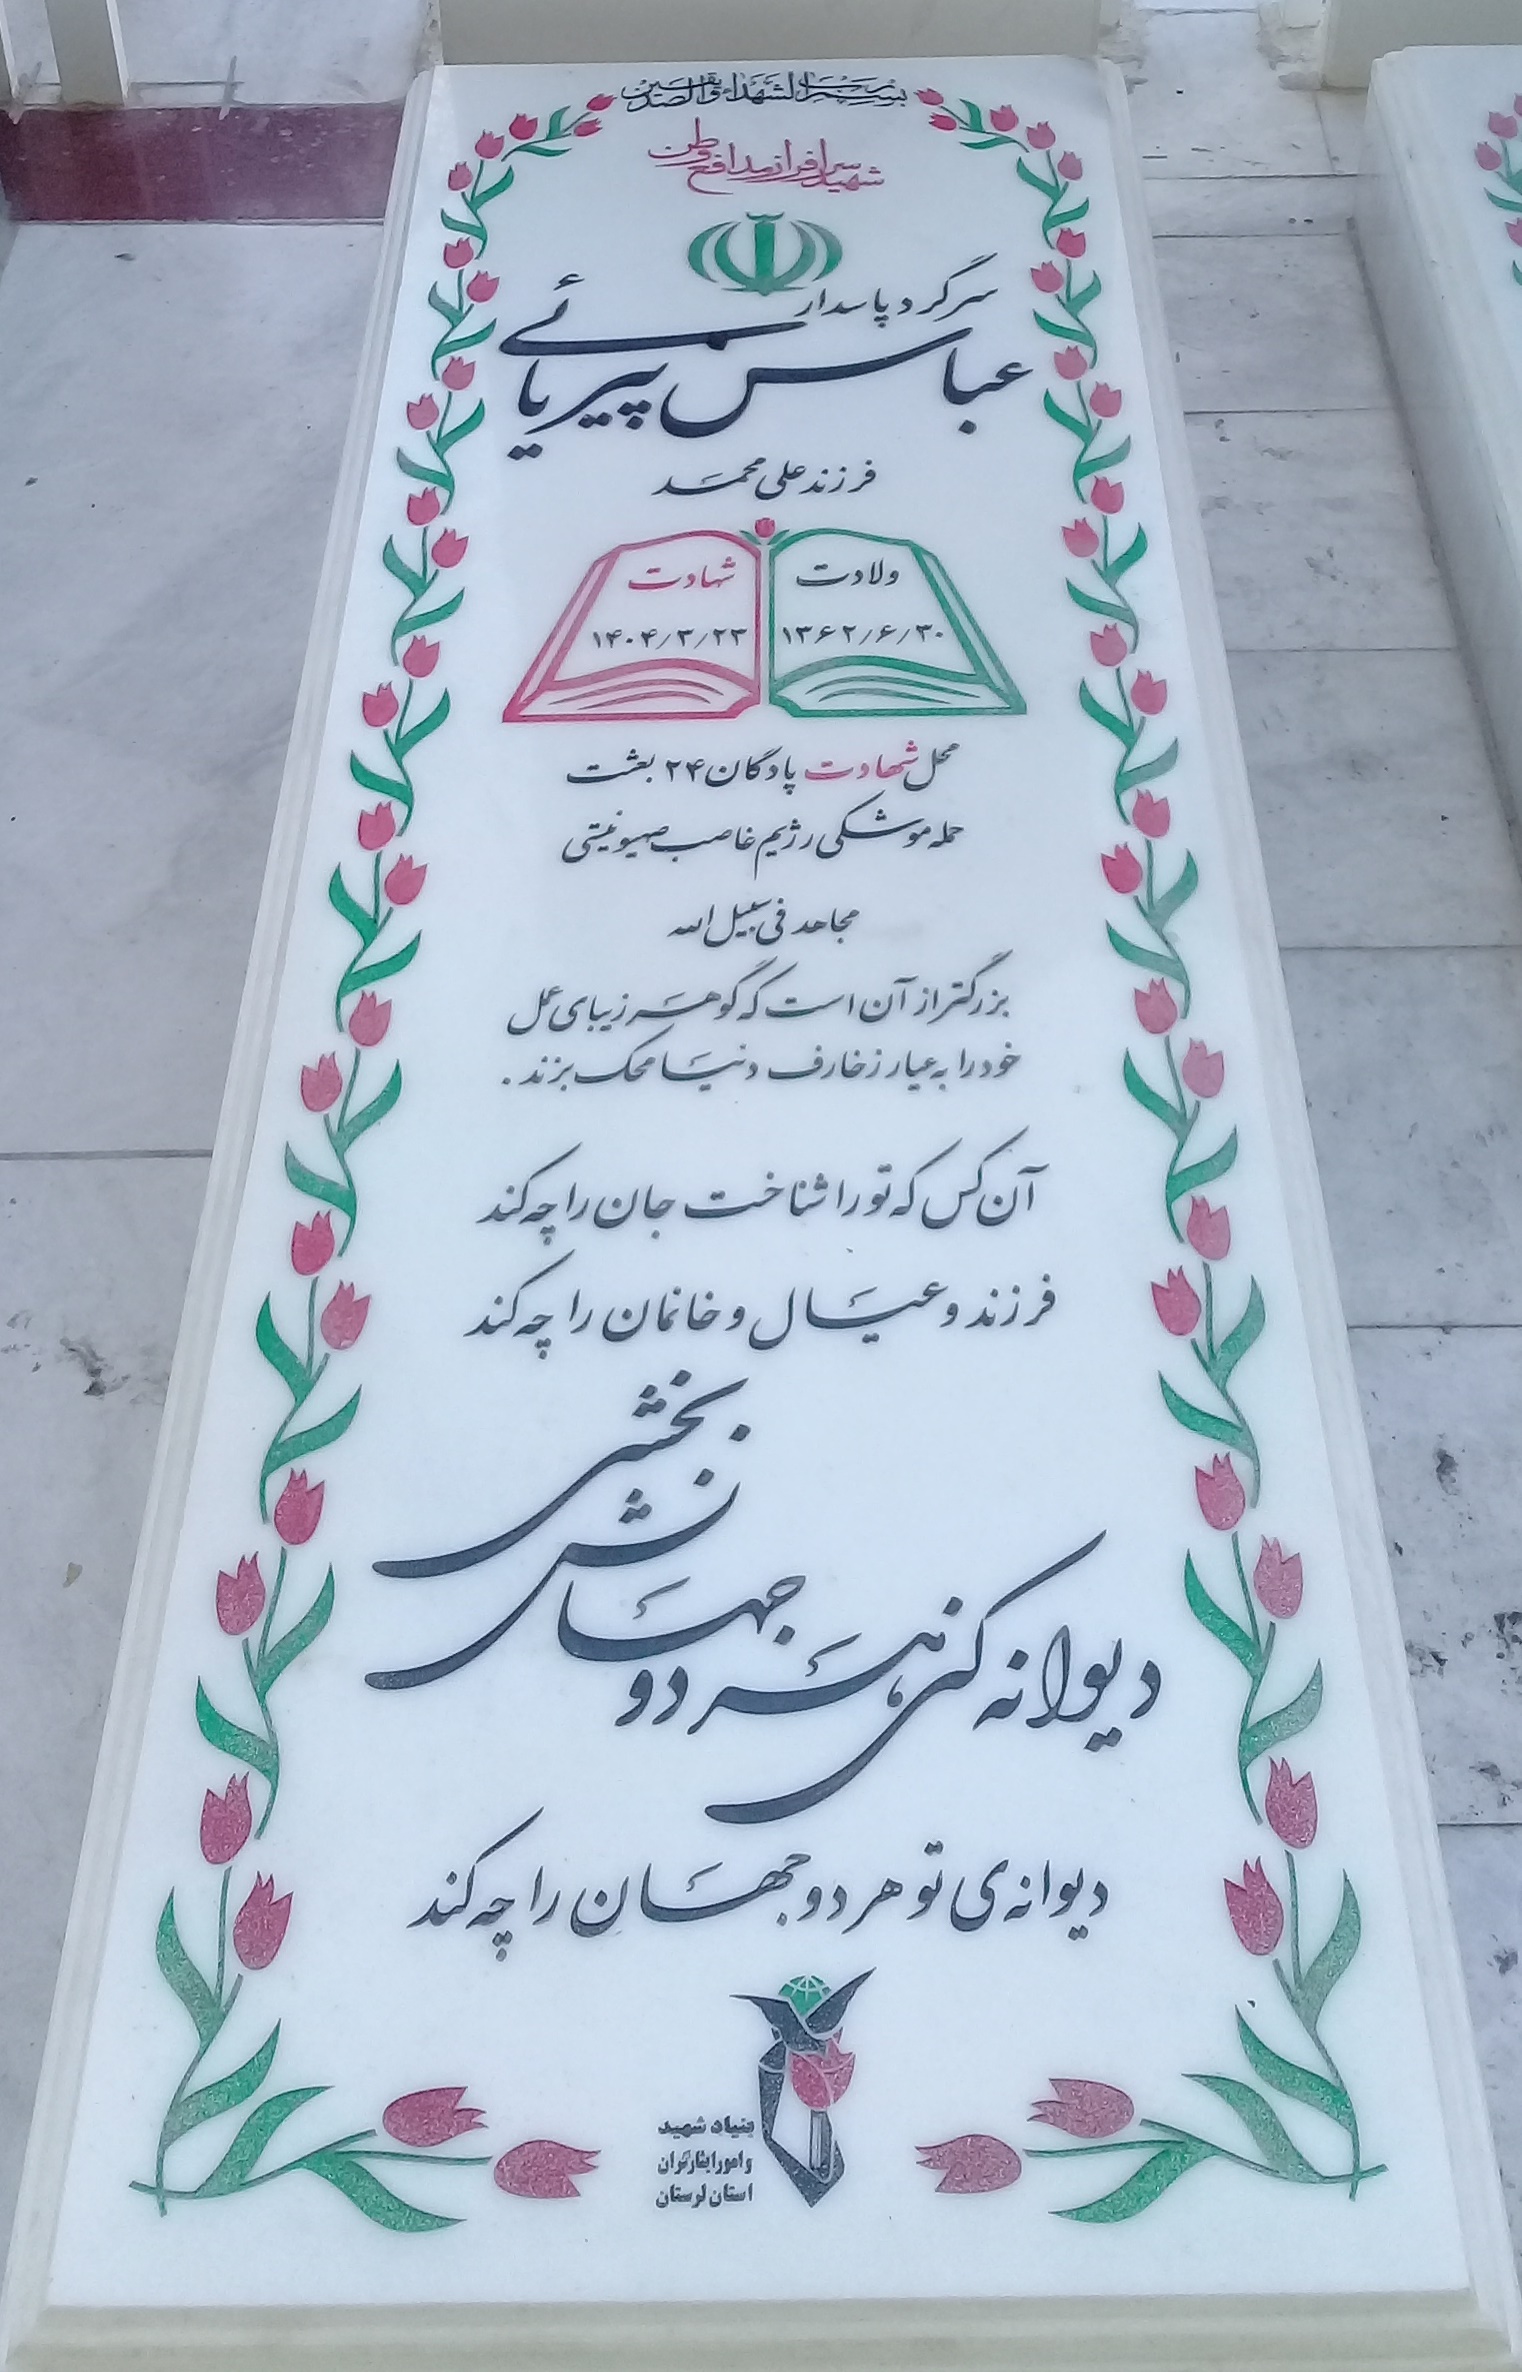 بسم رب الشهداء و الصدیقین
شهید سرافراز مدافع وطن
سرگرد پاسدار
عباس پیریائی
فرزند علی محمد
ولادت
۱۳۶۲/۶/۳۰
شهادت
۱۴۰۴/۳/۲۳
محل شهادت پادگان ۲۴ بعثت
حمله موشکی رژیم غاصب صهیونیستی
مجاهد فی سبیل الله
بزرگتر از آن است که گوهر زیبای عمل
خود را به عیار زخارف دنیا محک بزند.
آن کس که تو را شناخت جان را چه کند
فرزند و عیال و خانمان را چه کند
دیوانه کنی هر دو جهانش بخشی
دیوانه‌ی تو هر دو جهان را چه کند
بنیاد شهید
و امور ایثارگران
استان لرستان